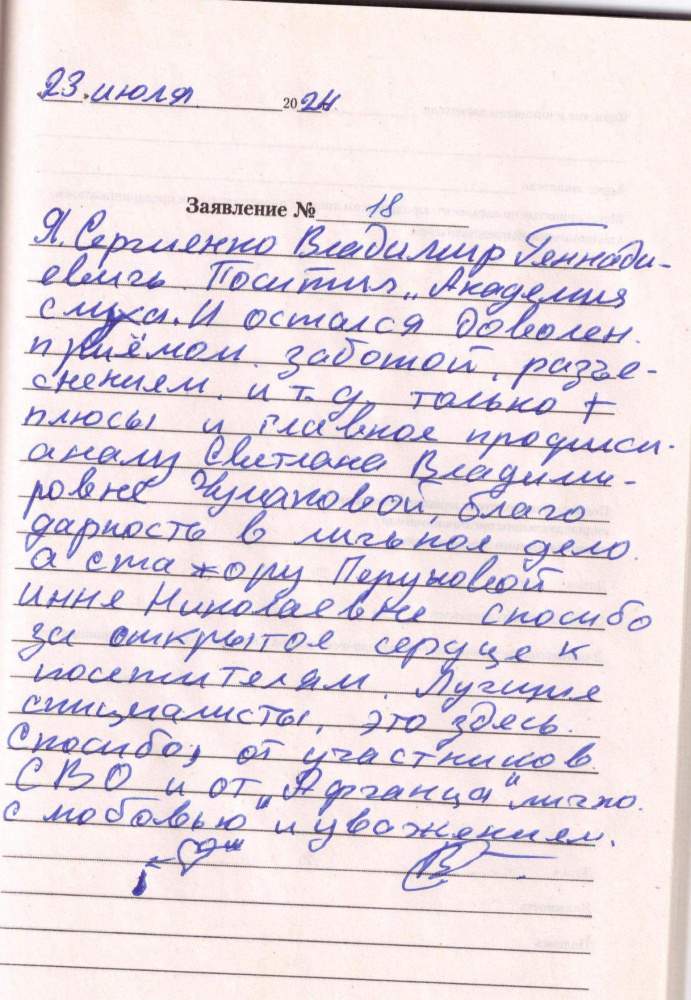 23 июля 2024
Заявление № 18
Я, Сергиенко Владимир Геннади-
евич. Поситил „Академия
слуха. И остался доволен.
приёмом. заботой, разъе-
снением. и т.д. только +
плюсы и главное профиси-
аналу Светлана Владими-
ровне Чумаковой благо
дарность в личное дело.
а стажору Перуновой
инне Николаевне спосибо
за открытое сердце к
посетителям. Лучшие
специалисты, это здесь.
Спосибо, от участников
СВО и от „Афганца" лично.
с любовью и уважением.